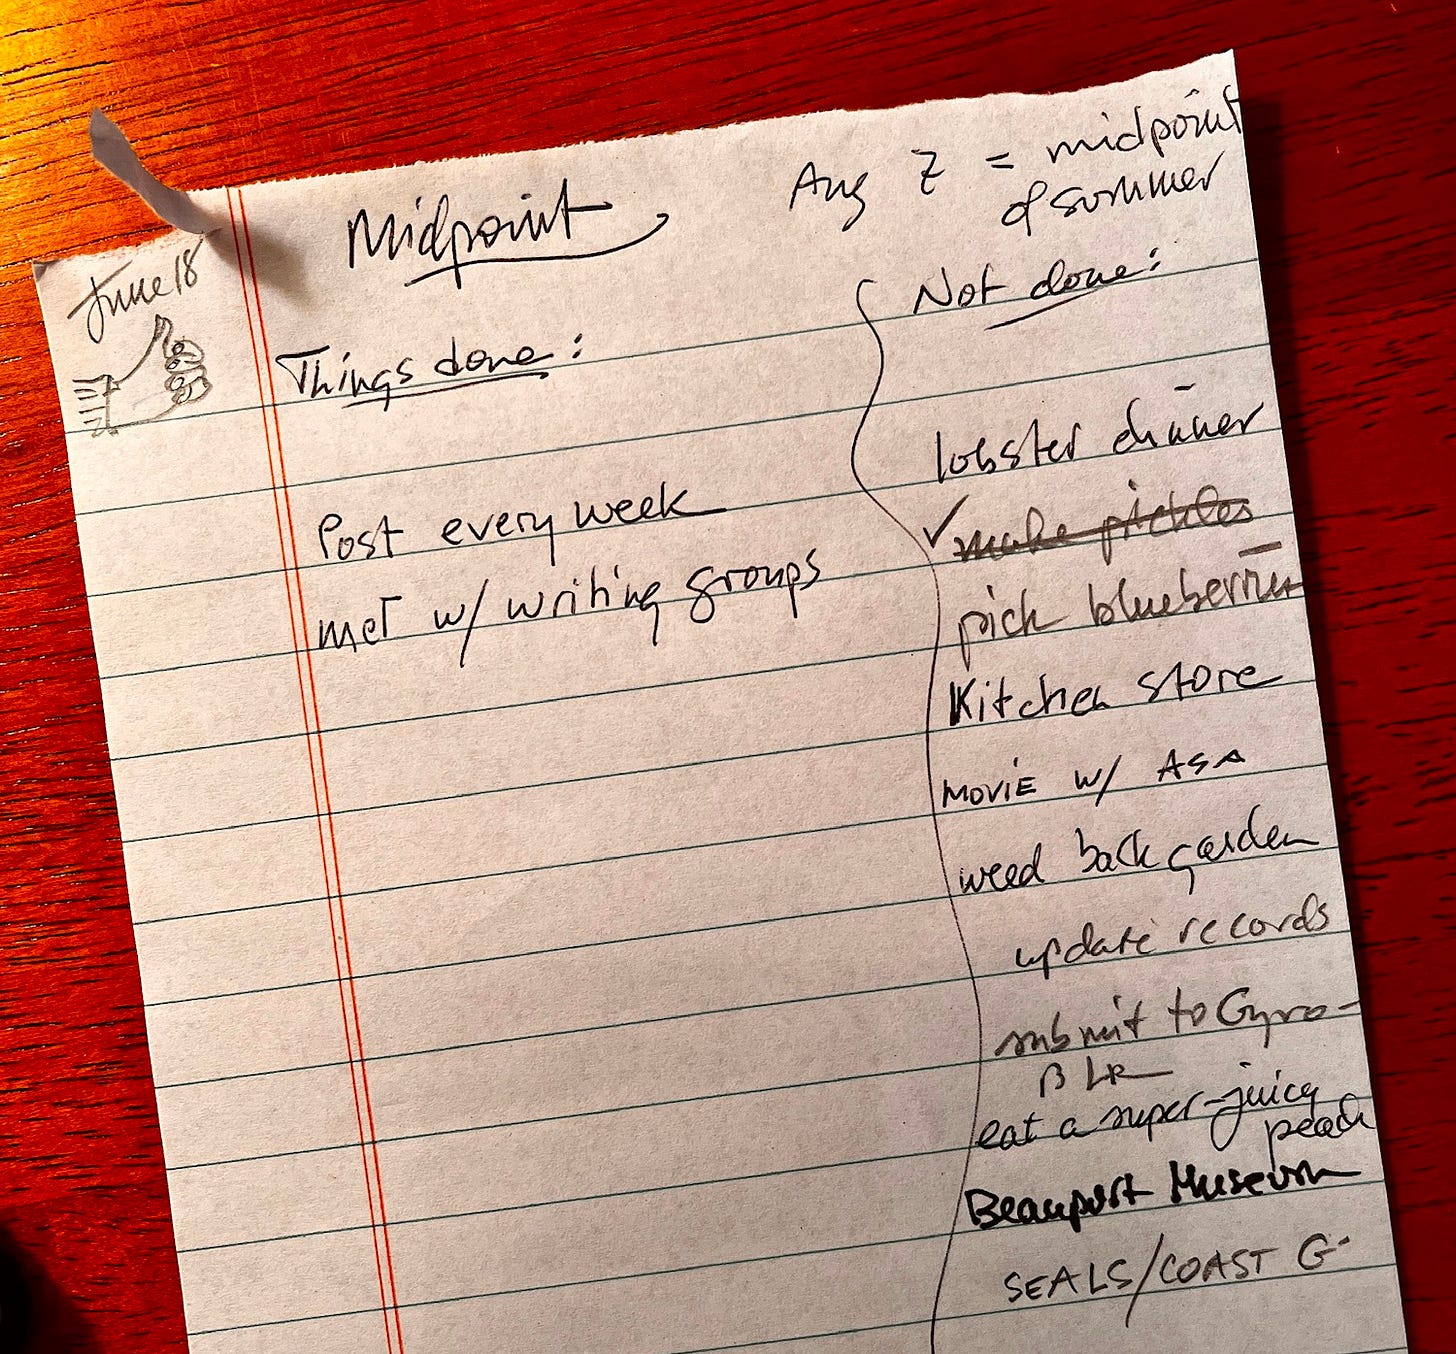 Midpoint
Aug 7 = midpoint
of summer
June 18
Things done:
Post every week
met w/ writing groups
Not done:
lobster dinner
✓ make pickles
pick blueberries
Kitchen store
MOVIE W/ ASA
weed back garden
update records
submit to Gyro-
B LR
eat a super-juicy
peach
Beauport Museum
SEALS/COAST G